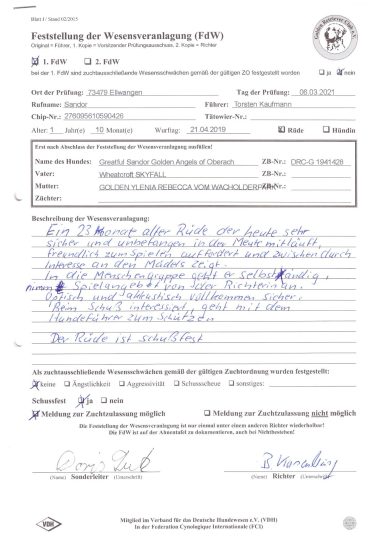 Blatt I / Stand 02/2015
Feststellung der Wesensveranlagung (FdW)
Original = Führer, 1. Kopie = Vorsitzender Prüfungsausschuss, 2. Kopie = Richter
1. FdW 2. FdW
bei der 1. FdW sind zuchtausschließende Wesensschwächen gemäß der gültigen ZO festgestellt worden ja nein
Ort der Prüfung: 73479 Ellwangen Tag der Prüfung: 06.03.2021
Rufname: Sandor Führer: Torsten Kaufmann
Chip-Nr.: 276095610590426 Tätowier-Nr.:
Alter: 1 Jahr(e) 10 Monat(e) Wurftag: 21.04.2019 Rüde Hündin
Erst nach Abschluss der Feststellung der Wesensveranlagung ausfüllen!
Name des Hundes: Greatful Sandor Golden Angels of Oberach ZB-Nr.: DRC-G 1941428
Vater: Wheatcroft SKYFALL ZB-Nr.:
Mutter: GOLDEN YLENIA REBECCA VOM WACHOLDER
Züchter:
Beschreibung der Wesensveranlagung:
Ein 23 Monate alter Rüde der heute sehr
sicher und unbefangen in der Meute mitläuft,
freundlich zum Spielen auffordert und zwischendurch
Interesse an den Mädels zeigt.
In die Menschengruppe geht er selbständig,
nimmt Spielangebot von der Richterin an.
Optisch und akkustisch vollkommen sicher.
Beim Schuß interessiert, geht mit dem
Hundeführer zum Schützen
Der Rüde ist schußfest
Als zuchtausschließende Wesensschwächen gemäß der gültigen Zuchtordnung wurden festgestellt:
keine Ängstlichkeit Aggressivität Schussscheue sonstiges:
Schussfest ja nein
Meldung zur Zuchtzulassung möglich Meldung zur Zuchtzulassung nicht möglich
Die Feststellung der Wesensveranlagung ist nur einmal unter einem anderen Richter wiederholbar!
Die FdW ist auf der Ahnentafel zu dokumentieren, auch bei Nichtbestehen!
Doris
(Name) Sonderleiter (Unterschrift) (Name) Richter (Unterschrift)
VDH
Mitglied im Verband für das Deutsche Hundewesen e.V. (VDH)
In der Federation Cynologique Internationale (FCI)
FCI